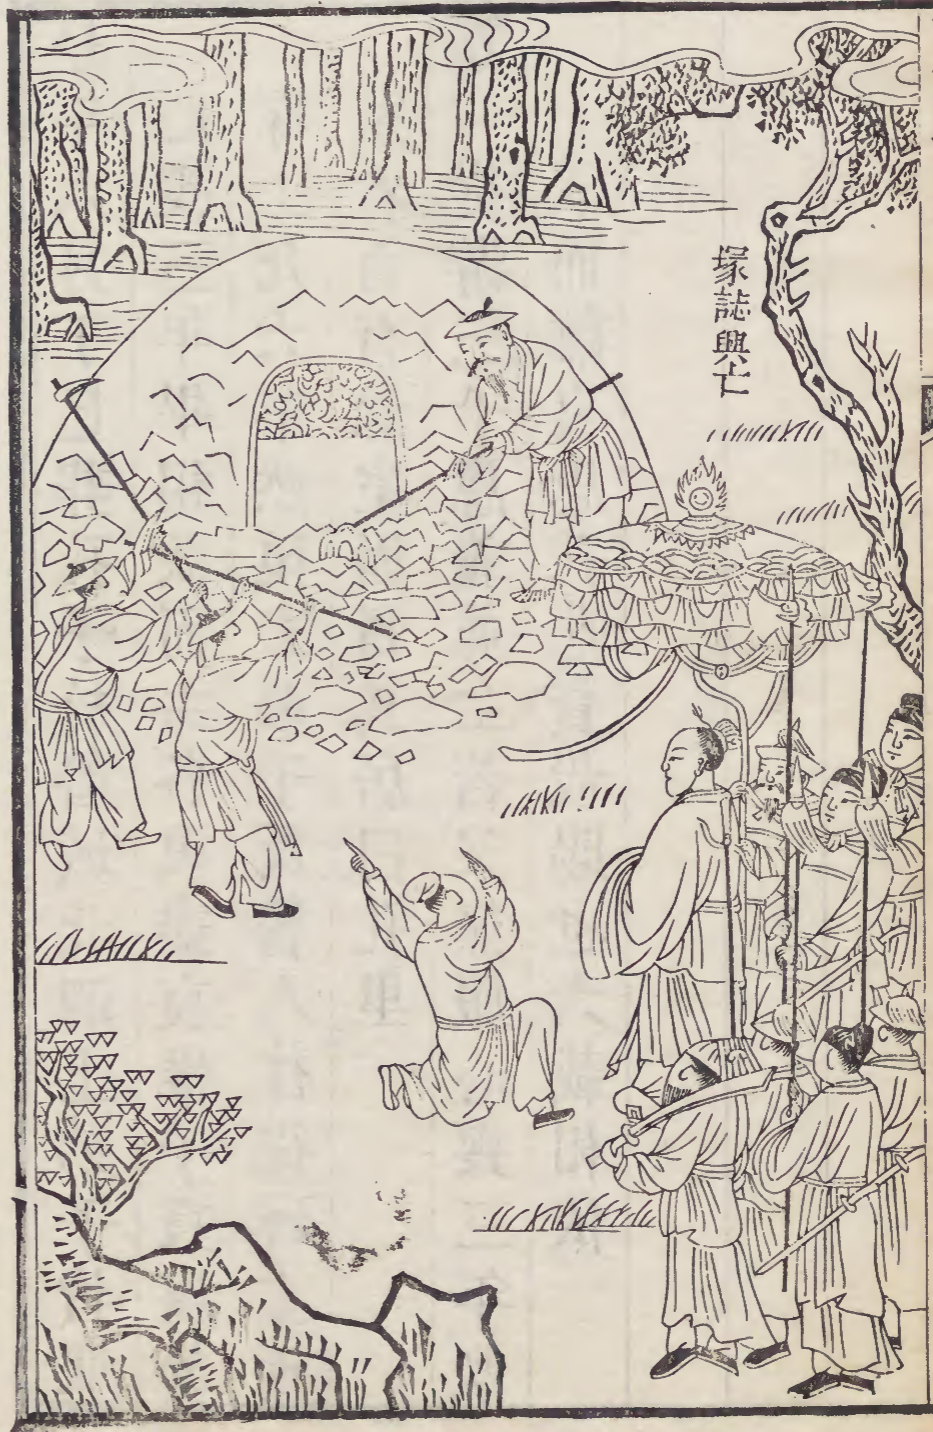 塚誌興亡